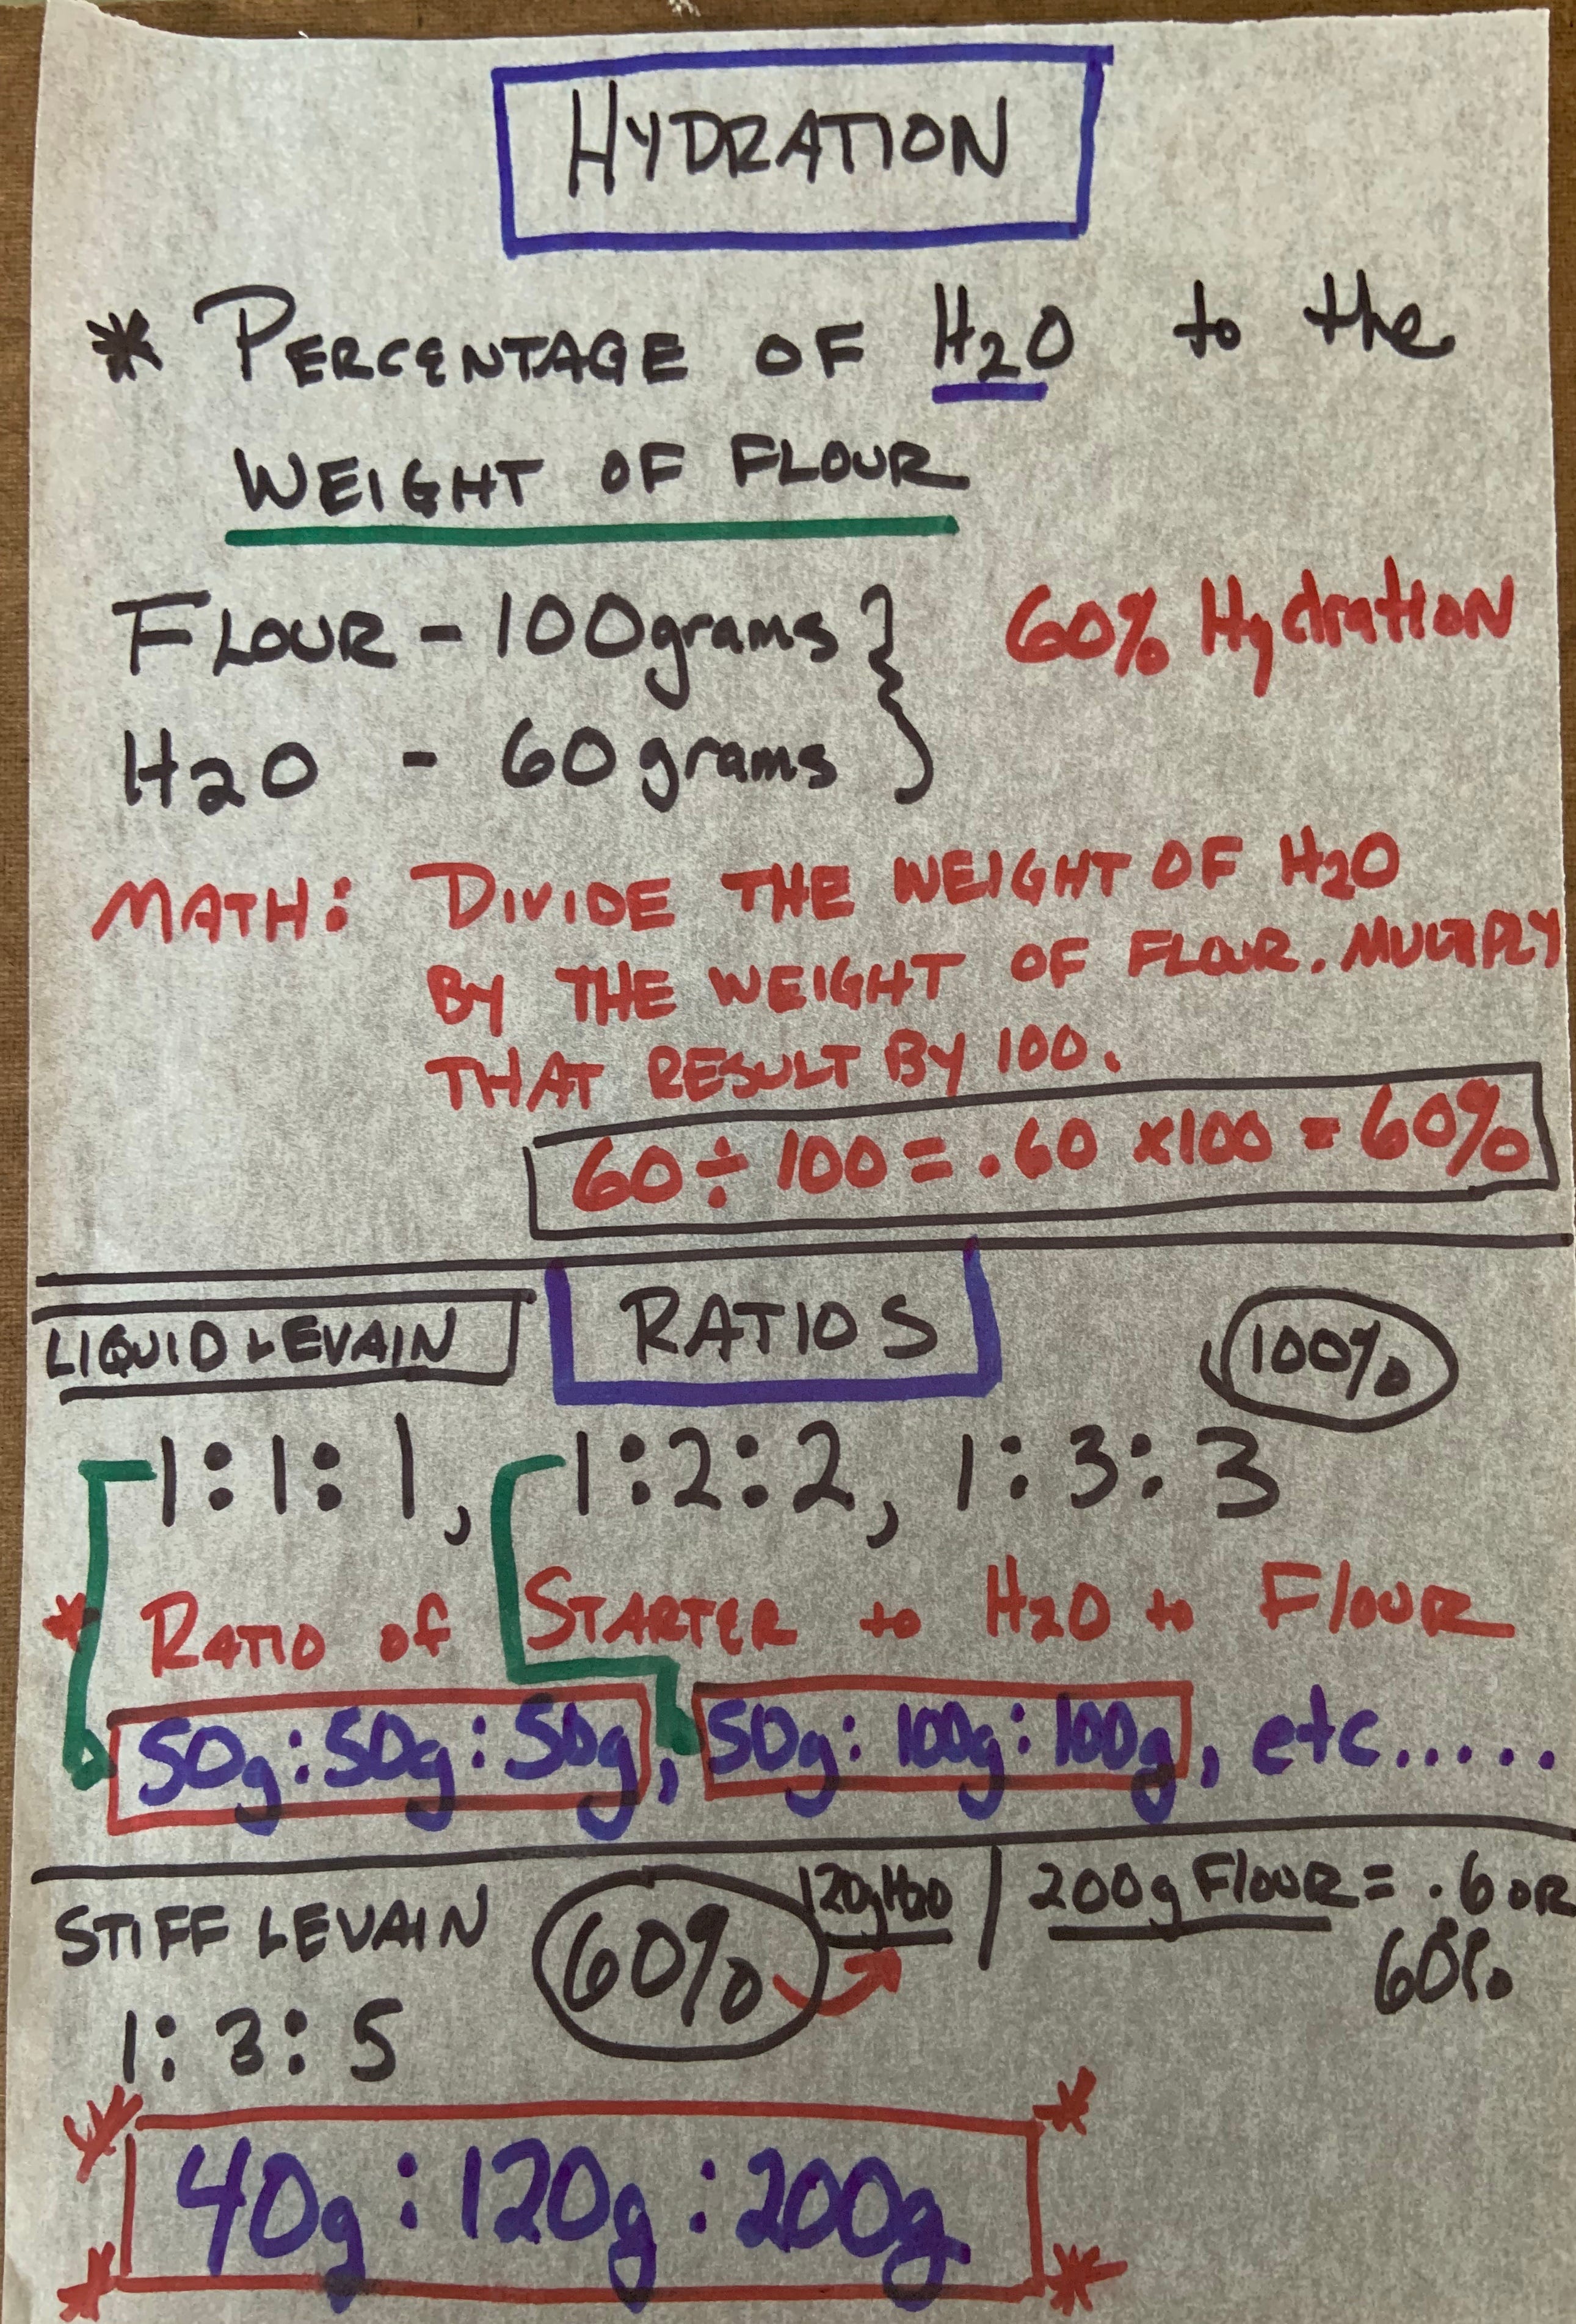 HYDRATION
* PERCENTAGE OF H2O to the
WEIGHT OF FLOUR
FLOUR - 100grams } 60% Hydration
H2O - 60 grams
MATH: DIVIDE THE WEIGHT OF H2O
BY THE WEIGHT OF FLOUR. MULTIPLY
THAT RESULT BY 100.
60 ÷ 100 = .60 x100 = 60%
LIQUID LEVAIN RATIOS 100%
1:1:1, 1:2:2, 1:3:3
* RATIO of STARTER to H2O to FlOUR
50g:50g:50g, 50g:100g:100g, etc.....
STIFF LEVAIN 60% 120gH20 / 200g FlOUR = .6 OR
60%
1:3:5
40g:120g:200g